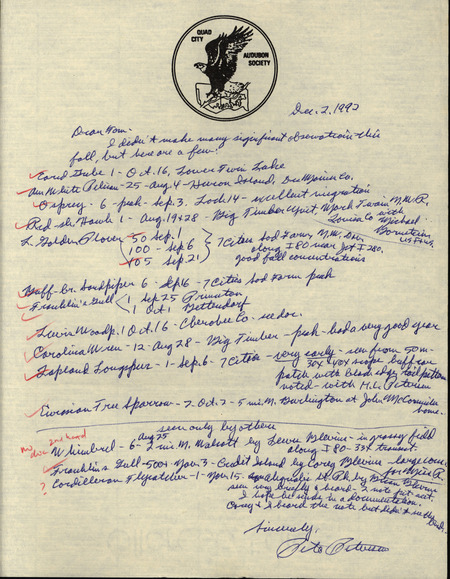 QUAD
CITY
AUDUBON
SOCIETY
Dec. 2, 1992
Dear Tom.
I didn't make many significant observations this
fall, but here are a few:
Eared Grebe 1 - Oct. 16, Lower Twin Lake
Am. White Pelican - 25 - aug 4 - Huron Island, Des Moines Co.
Osprey - 6 - peak - sep. 3. Lock 14 - excellent migration
Red-sh. Hawk 1 - Aug. 19 & 28 - Big Timber Unit, Mark Twain N.W.R,
Louisa Co. with Michael
Bornstein
US F&WS.
L. Golden Plover - 50 sep. 1
100 - sep 6
105 sep 21
7 Cities Sod Farm, N.W. Dav.
along I 80 near Jct I 280.
good fall concentrations
Buff-br. Sandpiper 6 - sep 16 - 7 Cities Sod Farm - peak
Franklin's Gull 1 sep 25 Princeton
1 Oct 1 Bettendorf
Lewis Woodp. 1 Oct. 16 - Cherokee Co. - see doc.
Carolina Wren - 12 - Aug 28 - Big Timber - peak - had a very good year
Lapland Longspur - 1 - Sep. 6 - 7 Cities - very early - seen from 50 m -
scope. buff ear
patch with black edge, tail pattern
noted - with H.L. Petersen
Eurasian Tree Sparrow - 7 - Oct. 2 - 5 mi. N. Burlington at John McCormick
home.
seen only by others
no doc 2nd hand
Whimbrel - 6 - aug 25 - 2 mi. N. Walcott by Lewis Blevins - in grassy field
along I 80 - 33X
Franklin's Gull - 500+ Nov. 3 - Credit Island by Corey Blevins - large conc.
for Miss. R.
? Cordilleran Flycatcher - 1 - Nov. 15 - by Brian Blevins
seen very briefly & heard - I
I hope he sends in a documentation.
Corey & I heard the note but didn't see the bird.
Sincerely,
Pete Petersen